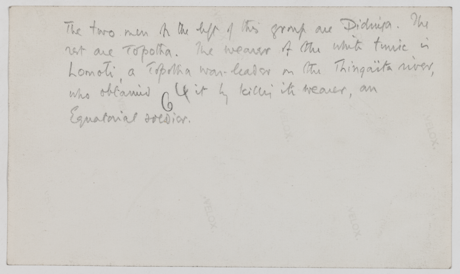 The two men on the left of this group are Didinga. The
rest are Topotha. The wearer of the white tunic is
Lomoti, a Topotha war-leader on the Thingaita river,
who obtained it by killing its wearer, an
Equatorial soldier.